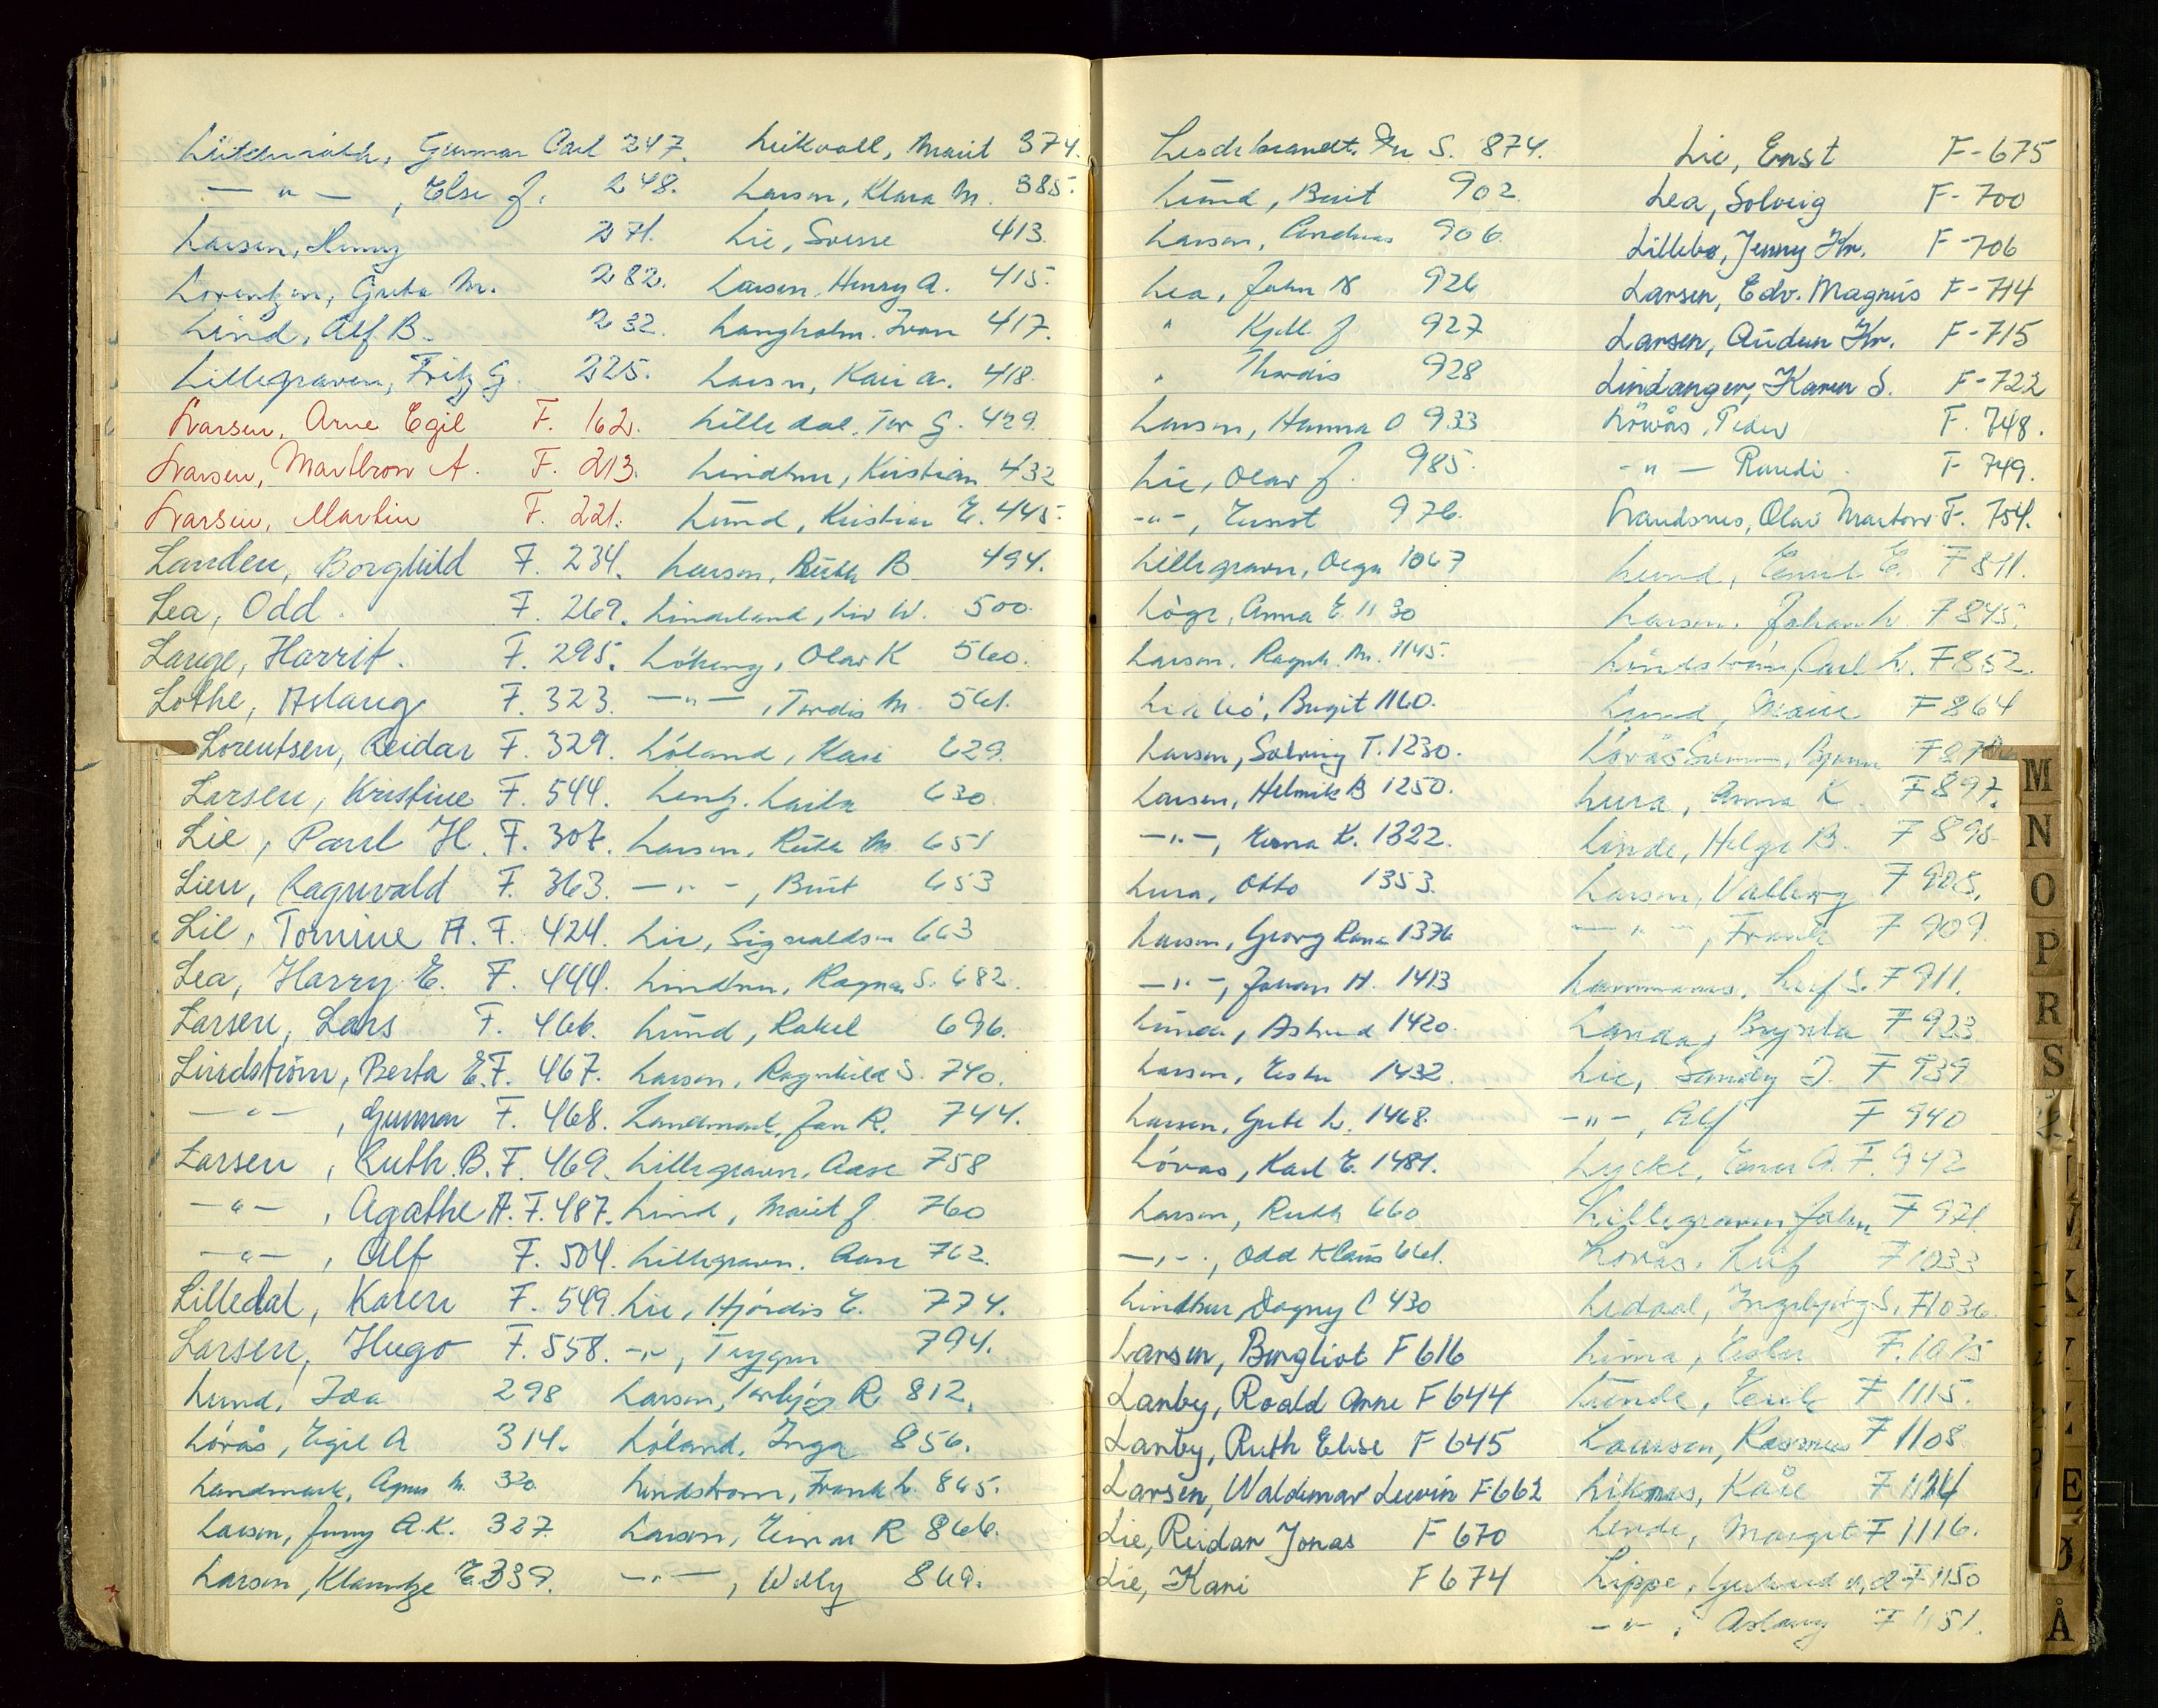 Lütcherath, Gunnar Carl 247.
— " — , Else J. 248.
Larsen, Henny 271.
Lorentzen, Greta M. 282.
Lind, Alf B. 232.
Lillegraven, Fritz G. 225.
Larsen, Arne Egil F. 162.
Larsen, Marthon A. F. 213.
Larsen, Martin F. 221.
Landen, Borghild F. 234.
Lea, Odd. F. 269.
Lange, Harrit. F. 295.
Lothe, Aslaug F. 323.
Lorentsen, Reidar F. 329.
Larsen, Kristine F. 544.
Lie, Paul H. F. 307.
Lien, Ragnvald F. 363.
Lie, Tomine A. F. 424.
Lea, Harry E. F. 444.
Larsen, Lars F. 466.
Lindstrøm, Berta E. F. 467.
— " — , Gunnar F. 468.
Larsen, Ruth B. F. 469.
— " — , Agathe A. F. 487.
— " — , Alf F. 504.
Lilledal, Karen F. 549.
Larsen, Hugo F. 558.
Lund, Ida 298
Lövås, Egil A 314.
Landmark, Agnes M. 320.
Larsen, Jenny A.K. 327.
Larsen, E. 339.
Leikvoll, Marit 374.
Larsen, Klara M. 385.
Lie, Sverre 413.
Larsen, Henry A. 415.
Langholm, Ivan 417.
Larsen, Kari A. 418.
Lilledal, Tor G. 429.
Lindtner, Kristian 432
Lund, Kristian E. 445.
Larsen, Ruth B 494.
Linderland, Liv W. 500.
Löking, Olav K 560.
— " — , Tordis M. 561.
Löland, Kari 629.
Lentz, Laila 630
Larsen, Ruth M. 651
— " — , Berit 653
Lie, Sigvaldsen 663
Lindtner, Ragna S. 682.
Lund, Rakel 696.
Larsen, Ragnhild S. 740.
Landmark, Jan R. 744.
Lillegraven, Aase 758
Lind, Marit J. 760
Lillegraven, Aase 762.
Lie, Hjördis E. 774.
— " — , Trygve 794.
Larsen, Torbjørg R. 812.
Löland, Inga 856.
Lindstrøm, Frank L. 865.
Larsen, Einar R 866.
— " — , Willy 869.
S. 874.
Lund, Berit 902.
Larsen, Andreas 906.
Lea, John N 926
" Kjell J 927
" Thordis 928
Larsen, Hanna O 933
Lie, Olav J. 985.
— " — , Ernst 976.
Lillegraven, Olga 1067
Löge, Anna E. 1130
Larsen, Ragnh. M. 1145.
Liabö, Birgit 1160.
Larsen, Solveig T. 1230.
Larsen, Helmik B 1250.
— " — , Erna K. 1322.
Lura, Otto 1353.
Larsen, Georg 1376
— " — , Johan H. 1413
Lunde, Astrid 1420.
Larsen, Ester 1432.
Larsen, Grete L. 1468.
Lövås, Karl E. 1481.
Larsen, Ruth 660
— " — , Odd Klaus 661.
Lindtner, Dagny C 430
Larsen, Bergliot F 616
Lanby, Roald Arne F 644
Lanby, Ruth Elise F 645
Larsen, Waldemar Lewin F-662
Lie, Reidar Jonas F 670
Lie, Kari F 674
Lie, Ernst F-675
Lea, Solveig F-700
Lillebø, Jenny Kr. F-706
Larsen, Edv. Magnus F-714
Larsen, Audun Kr. F-715
Lindanger, Karen S. F-722
Lövås, Peder F. 748.
— " — Randi F 749.
Landsnes, Olav Martow F. 754.
Lund, Emil E. F 811.
Larsen, Johan L. F 845.
Lindström, Carl L. F 852.
Lund, Marie F 864
Bjarne
Lura, Anna K. F 897.
Linde, Helge B. F 898
Larsen, Valborg F 905.
— " — , Frank F 909
Lammanns, Leif S. F 911.
Landa, Brynla F 923
Lie, Sandy J. F 939
— " — , Alf F 940
Lycke, Einar A. F. 942
Lillegraven John F 971.
Lövås, Leif F 1033
Lidaal, Ingebjørg S. F 1036.
Lima, Esther F. 1075
Lunde, Erik F 1115.
Laursen, Rasmus F 1108
Liknes, Kåre F 1124
Lende, Margit F 1116.
Lippe, Gerhard F 1150
— " — , Aslaug F 1151.
M
N
O
P
R
S
E
Ø
Å